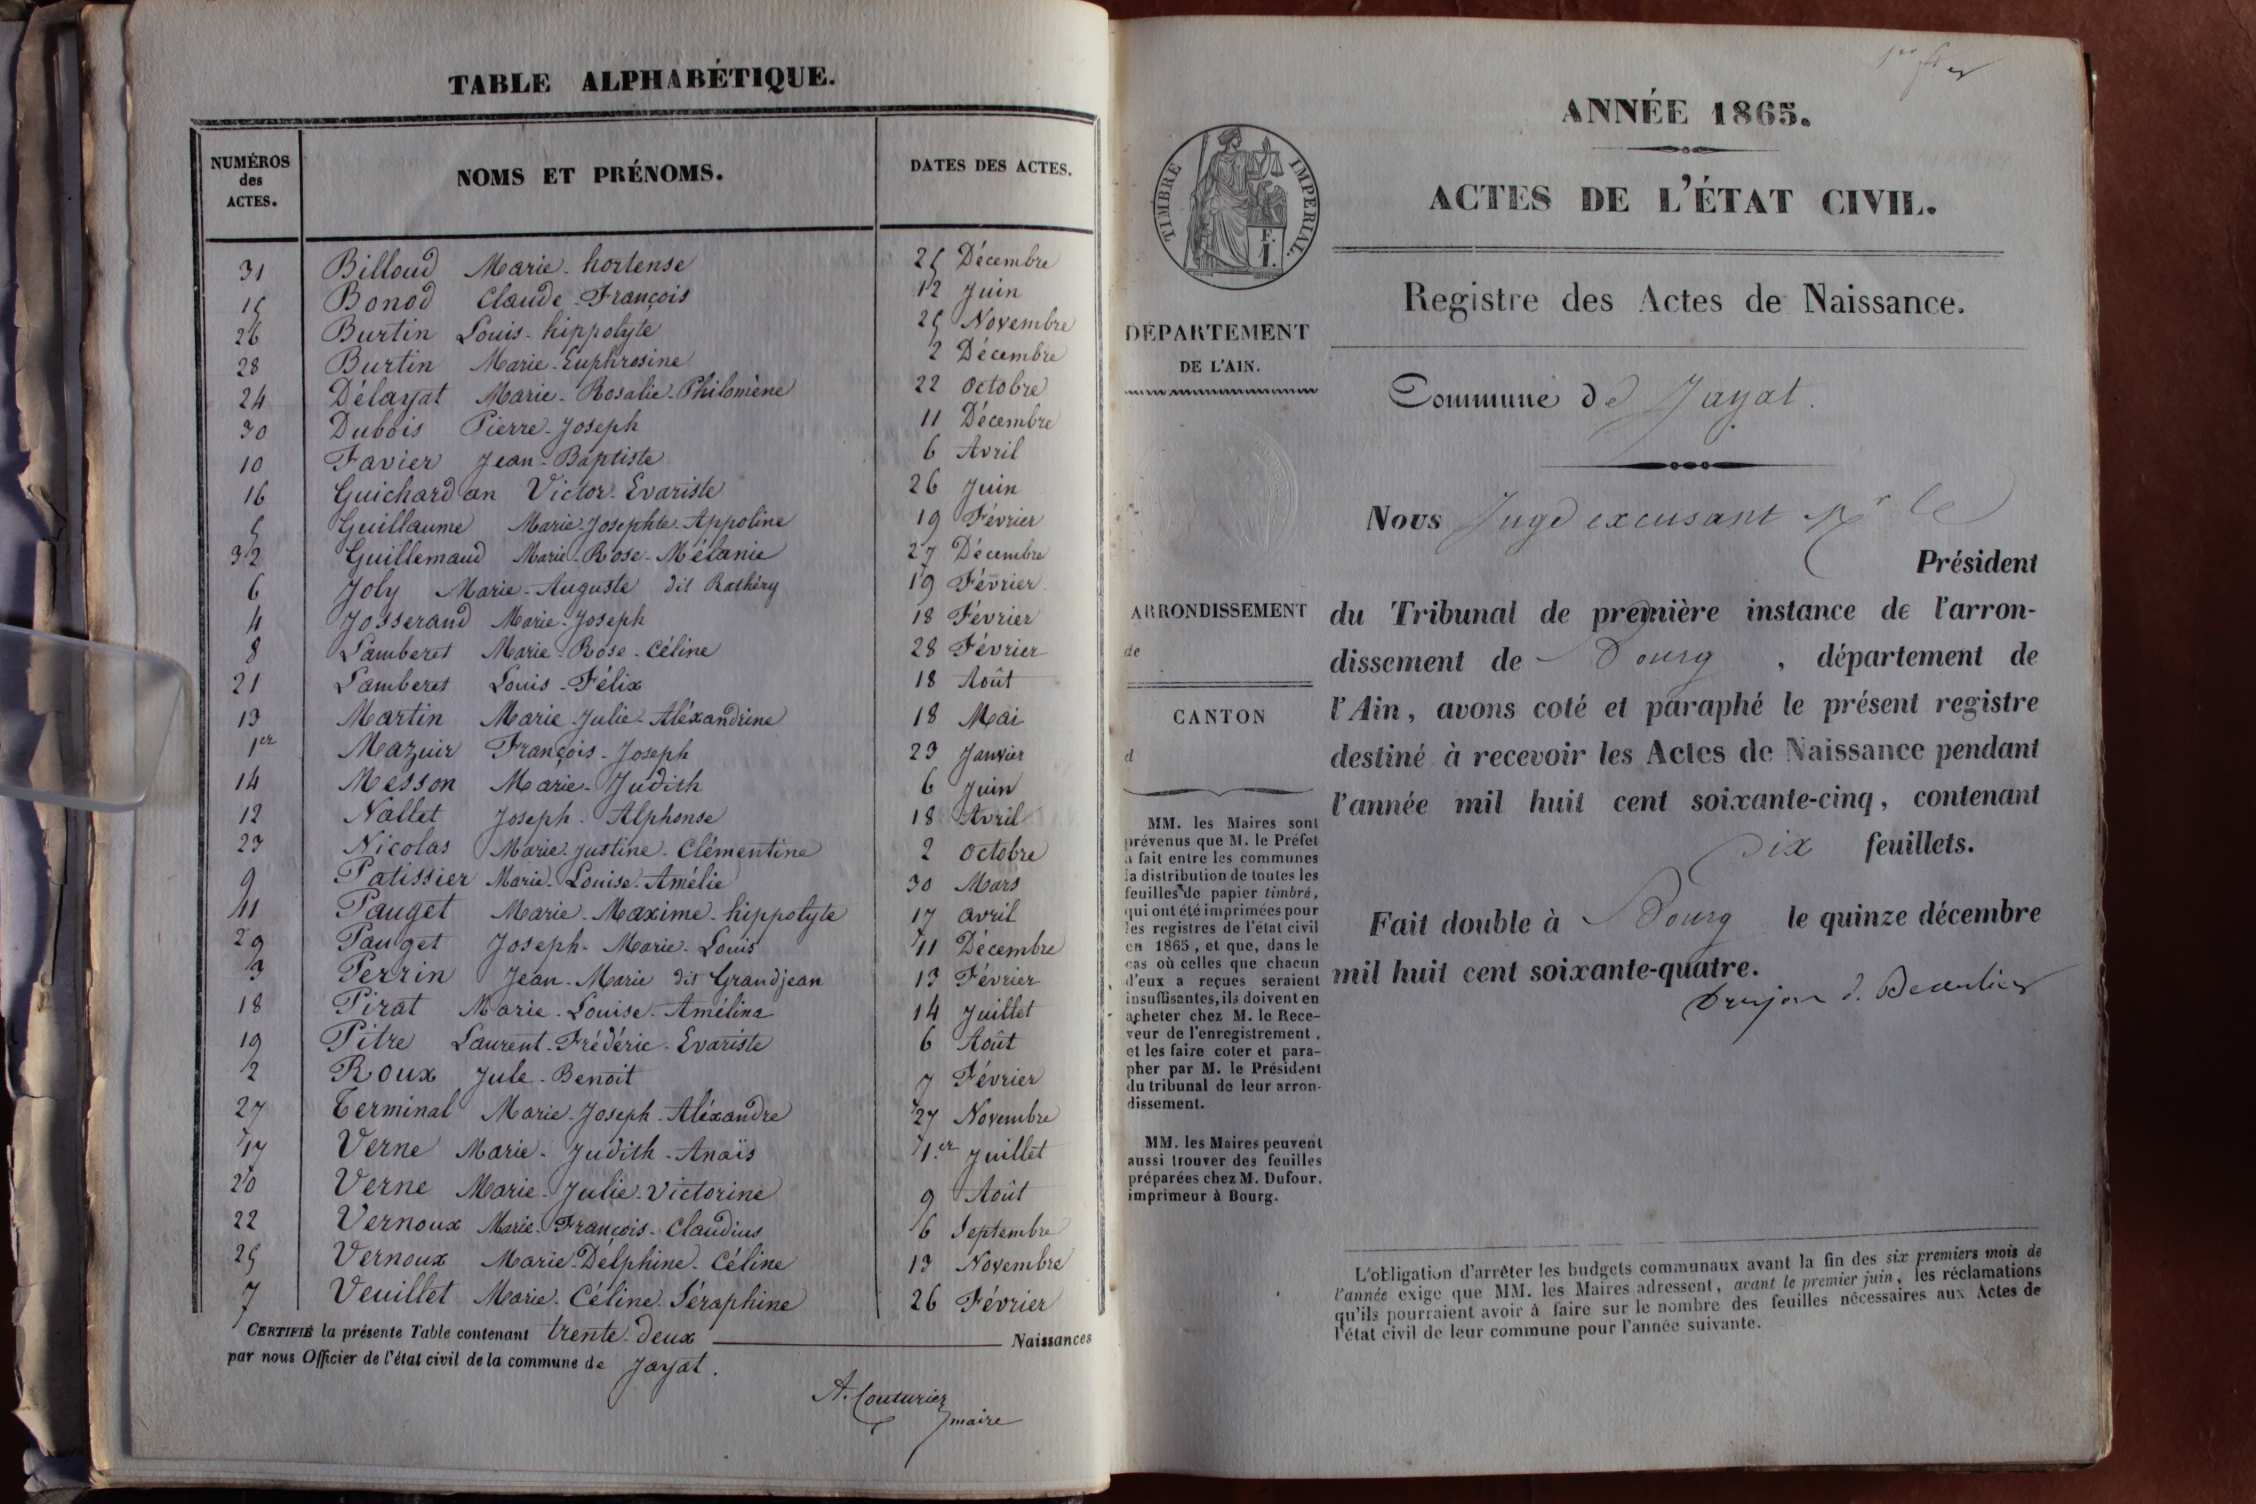 TABLE ALPHABÉTIQUE.
NUMÉROS des ACTES. NOMS ET PRÉNOMS. DATES DES ACTES.
31 Billoud Marie-hortense 25 Décembre
15 Bonod Claude-François 12 Juin
26 Burtin Louis-hippolyte 25 Novembre
28 Burtin Marie-Euphrosine 2 Décembre
24 Délayat Marie-Rosalie-Philomène 22 octobre
30 Dubois Pierre-Joseph 11 Décembre
10 Favier Jean-Baptiste 6 Avril
16 Guichardan Victor-Evariste 26 Juin
5 Guillaume Marie-Josephte-Appoline 19 Février
32 Guillemaud Marie-Rose-Mélanie 27 Décembre
6 Joly Marie-Auguste dit Rathéry 19 Février
4 Josserand Marie-Joseph 18 Février
8 Lamberet Marie-Rose-Céline 28 Février
21 Lamberet Louis-Félix 18 Août
13 Martin Marie-Julie-Aléxandrine 18 Mai
1er Mazuir François-Joseph 23 Janvier
14 Messon Marie-Judith 6 Juin
12 Nallet Joseph-Alphonse 18 Avril
23 Nicolas Marie-Justine-Clémentine 2 octobre
9 Patissier Marie-Louise-Amélie 30 Mars
11 Pauget Marie-Maxime-hippolyte 17 avril
29 Pauget Joseph-Marie-Louis 11 Décembre
3 Perrin Jean-Marie dit Grandjean 13 Février
18 Pirat Marie-Louise-Amélina 14 Juillet
19 Pitre Laurent-Frédéric-Evariste 6 Août
2 Roux Jule-Benoit 7 Février
27 Terminal Marie-Joseph-Aléxandre 27 Novembre
17 Verne Marie-Judith-Anaïs 1.er Juillet
20 Verne Marie-Julie-Victorine 9 Août
22 Vernoux Marie-François-Claudius 6 Septembre
25 Vernoux Marie-Delphine-Céline 13 Novembre
7 Veuillet Marie-Céline-Séraphine 26 Février
CERTIFIÉ la présente Table contenant trente-deux Naissances
par nous Officier de l'état civil de la commune de Jayat.
A. Couturier
maire
ANNÉE 1865.
ACTES DE L'ÉTAT CIVIL.
TIMBRE IMPERIAL.
F.
1.
Registre des Actes de Naissance.
DÉPARTEMENT
DE L'AIN.
Commune de Jayat.
Nous Juge excusant Mr le
Président
ARRONDISSEMENT
de
CANTON
d
du Tribunal de première instance de l'arron-
dissement de Bourg, département de
l'Ain, avons coté et paraphé le présent registre
destiné à recevoir les Actes de Naissance pendant
l'année mil huit cent soixante-cinq, contenant
Dix feuillets.
Fait double à Bourg le quinze décembre
mil huit cent soixante-quatre.
MM. les Maires sont
prévenus que M. le Préfet
a fait entre les communes
la distribution de toutes les
feuilles de papier timbré,
qui ont été imprimées pour
les registres de l'état civil
en 1865, et que, dans le
cas où celles que chacun
d'eux a reçues seraient
insuffisantes, ils doivent en
acheter chez M. le Rece-
veur de l'enregistrement,
et les faire coter et para-
pher par M. le Président
du tribunal de leur arron-
dissement.
MM. les Maires peuvent
aussi trouver des feuilles
préparées chez M. Dufour,
imprimeur à Bourg.
L'obligation d'arrêter les budgets communaux avant la fin des six premiers mois de
l'année exige que MM. les Maires adressent, avant le premier juin, les réclamations
qu'ils pourraient avoir à faire sur le nombre des feuilles nécessaires aux Actes de
l'état civil de leur commune pour l'année suivante.